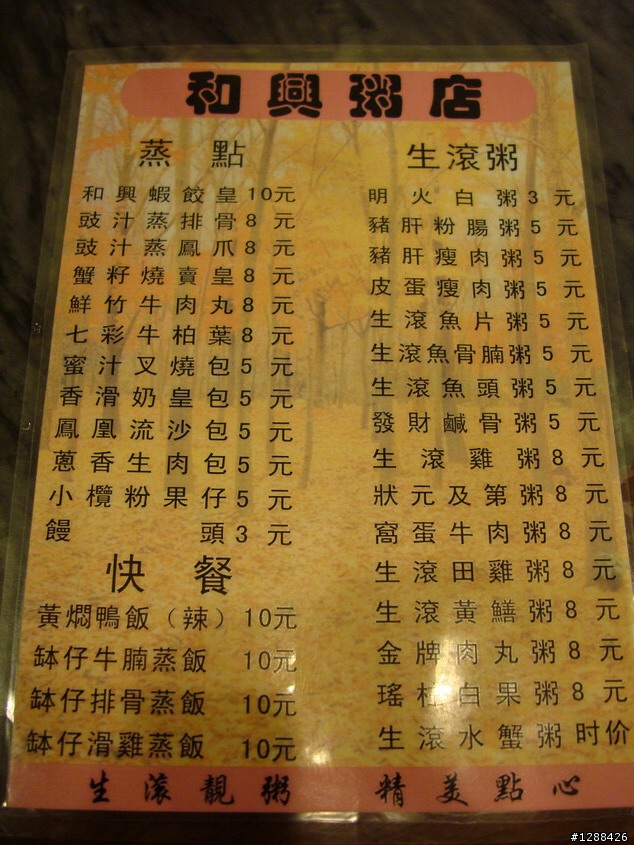 和興粥店
蒸點
和興蝦餃皇10元
豉汁蒸排骨8元
豉汁蒸鳳爪8元
蟹籽燒賣皇8元
鮮竹牛肉丸8元
七彩牛柏葉8元
蜜汁叉燒包5元
香滑奶皇包5元
鳳凰流沙包5元
蔥香生肉包5元
小欖粉果仔5元
饅頭3元
快餐
黃燜鴨飯（辣）10元
缽仔牛腩蒸飯 10元
缽仔排骨蒸飯 10元
缽仔滑雞蒸飯 10元
生滾粥
明火白粥3元
豬肝粉腸粥5元
豬肝瘦肉粥5元
皮蛋瘦肉粥5元
生滾魚片粥5元
生滾魚骨腩粥5元
生滾魚頭粥5元
發財鹹骨粥5元
生滾雞粥8元
狀元及第粥8元
窩蛋牛肉粥8元
生滾田雞粥8元
生滾黃鱔粥8元
金牌肉丸粥8元
瑤柱白果粥8元
生滾水蟹粥时价
生滾靚粥 精美點心
#1288426